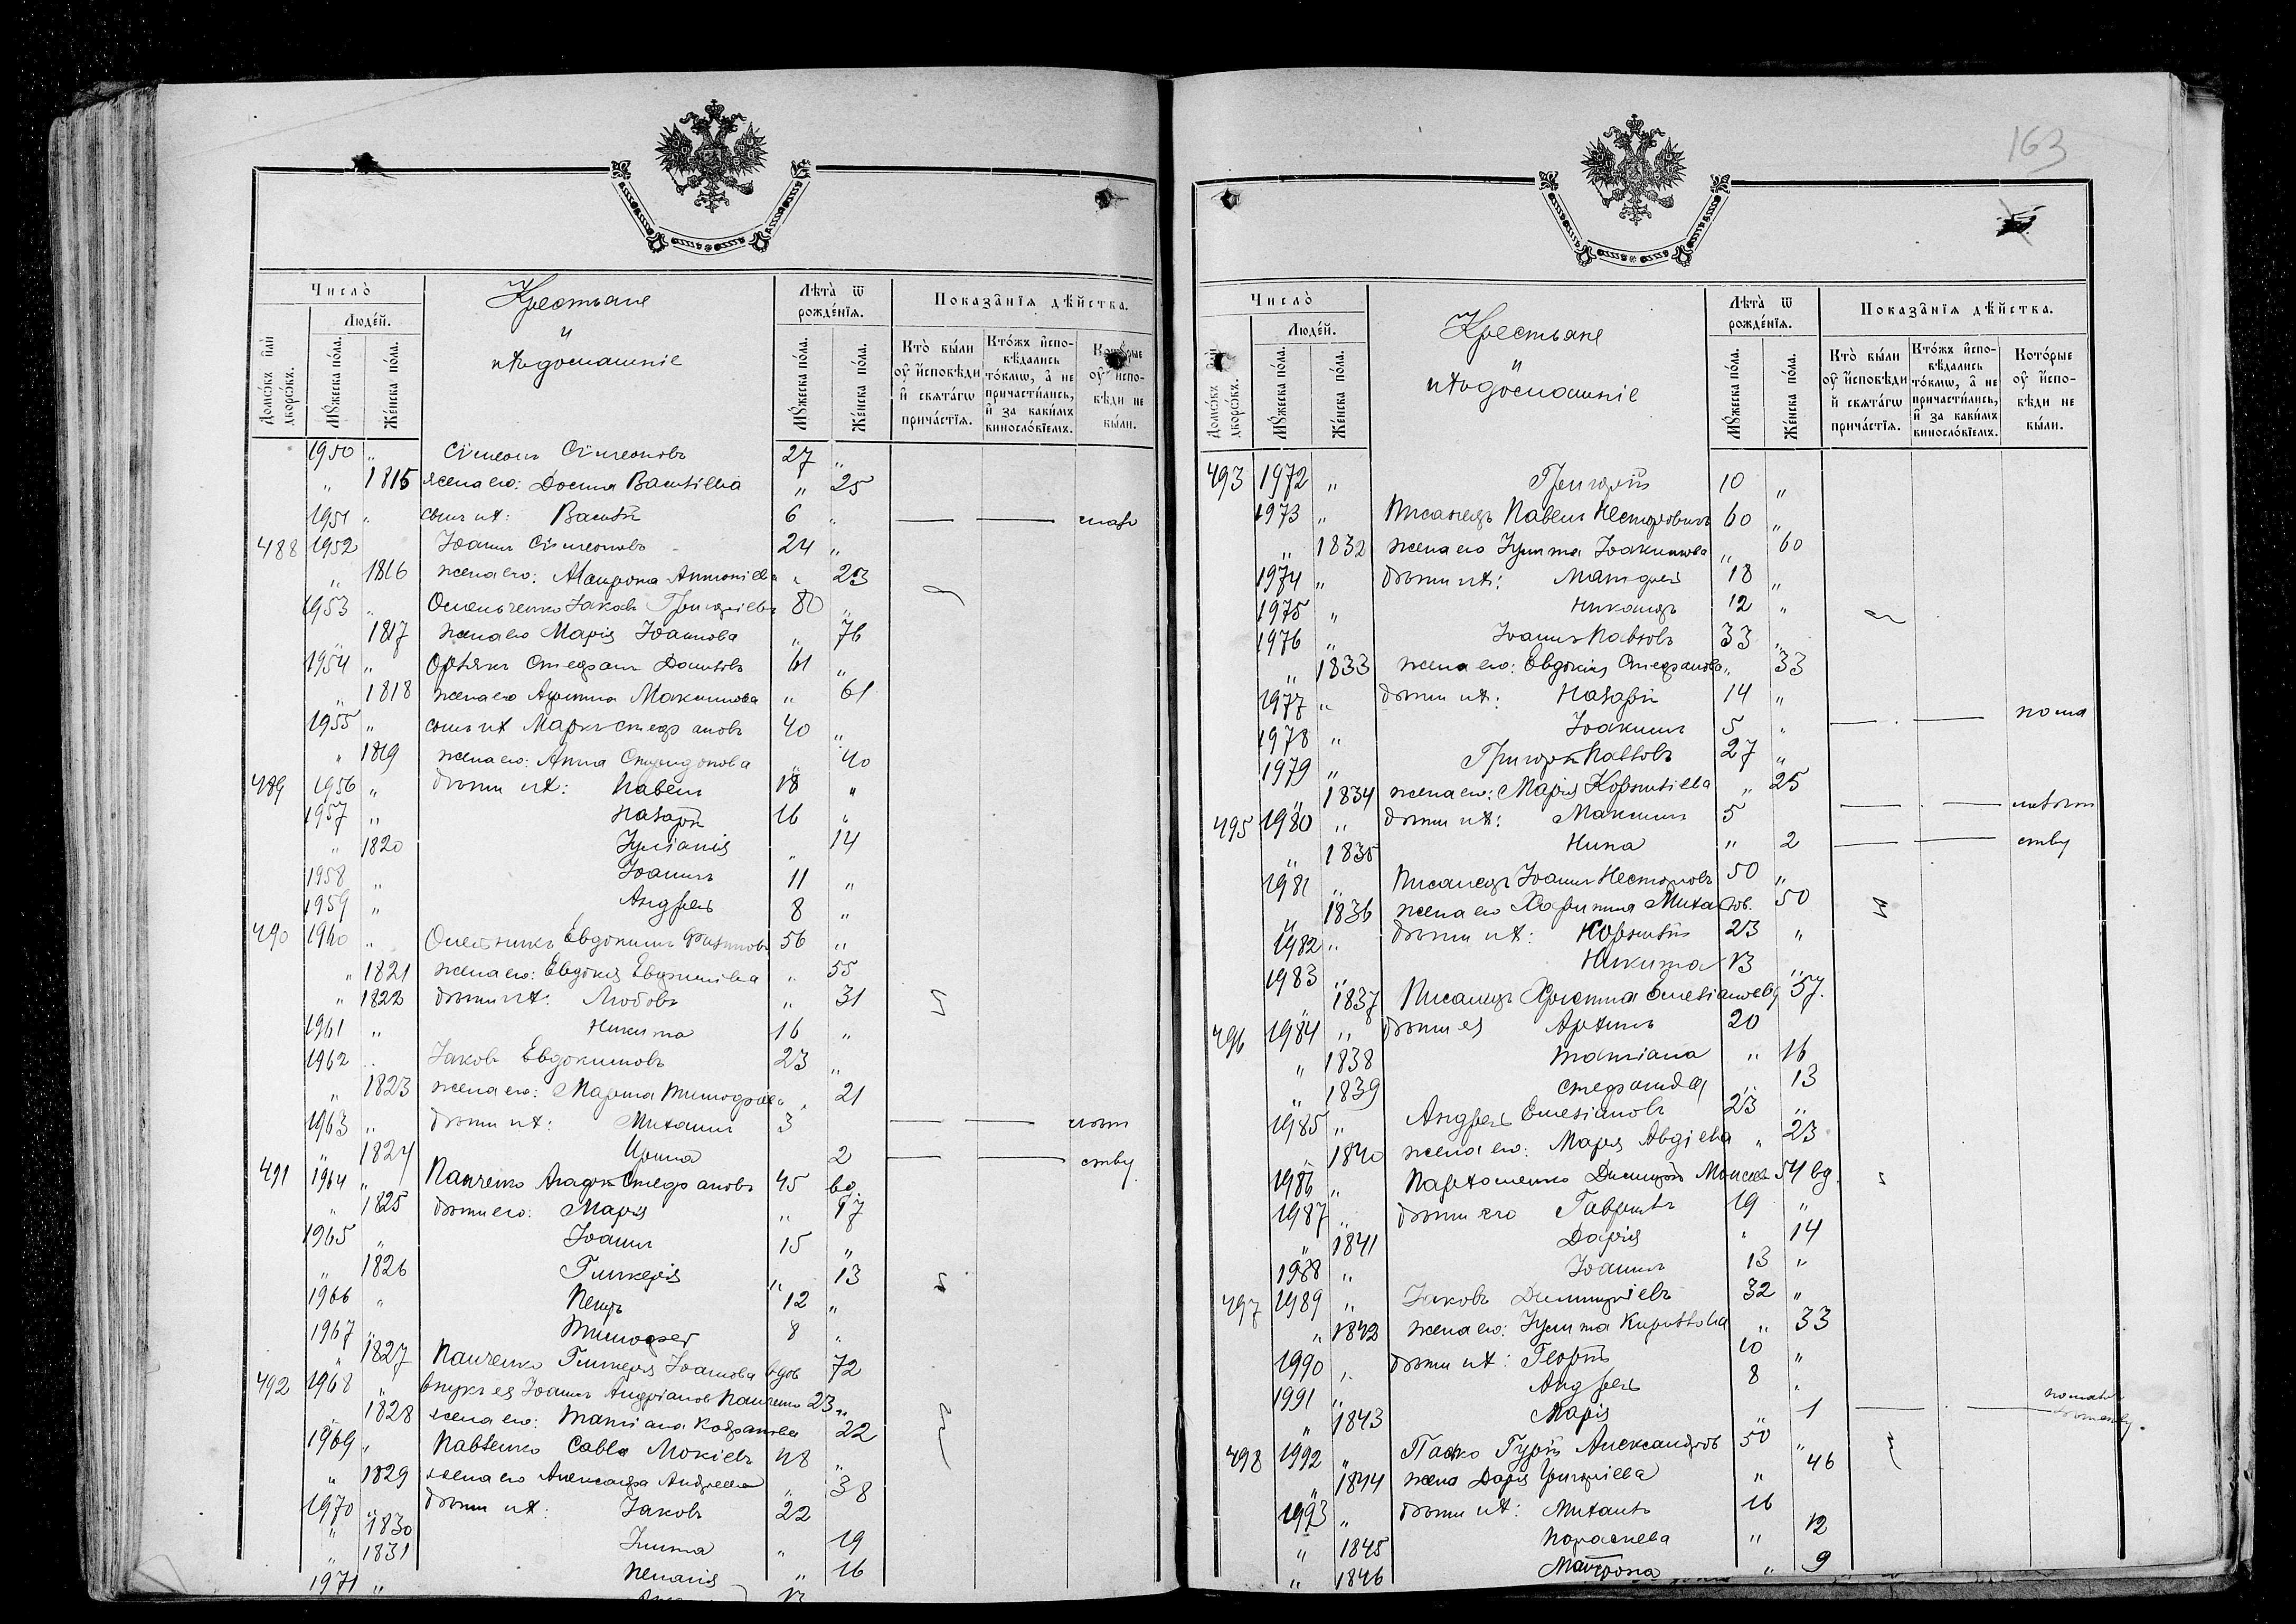 Число̀
Людéй.
Домѡ́въ и̑лѝ дворѡ́въ.
Мꙋ́жеска по́ла.
Же́нска по́ла.
Крестьяне
и
ихъ домашніе
Лѣта̀ ѿ рожде́нїѧ.
Мꙋ́жеска по́ла.
Же́нска по́ла.
Показа̑нїѧ дѣ́йства.
Кто̀ бы́ли оу҆ и҆сповѣ́ди и҆ свѧта́гѡ прича́стїѧ.
Кто́жъ и҆спо-вѣ́дались то́кмѡ, а҆ не причасти́лись, и҆ за каки́мъ винослові́емъ.
Кото́рые оу҆ и҆спо-вѣ́ди не бы́ли.
1950 „ Сѵмеонъ Сѵмеоновъ 27 „
„ 1815 жена его: Домна Васильева „ 25
1951 „ сынъ их: Василій 6 „ — — мало
488 1952 Іоаннъ Сѵмеоновъ 24 „
„ 1816 жена его: Матрона Антоніева „ 23
1953 „ Омельченко Іаковъ Григоріевъ 80 „
„ 1817 жена его Марія Іоаннова „ 76
1954 „ Стефанъ Даниловъ 61 „
„ 1818 жена его Максимова „ 61
1955 „ сынъ их Маркъ Стефановъ 40 „
„ 1819 жена его: Анна Спиридонова „ 40
489 1956 „ дѣти их: Павелъ 18 „
1957 „ Назарій 16 „
„ 1820 Іуліанія „ 14
1958 „ Іоаннъ 11 „
1959 „ Андрей 8 „
490 1960 „ Олейникъ Евдокимъ Филиповъ 56 „
„ 1821 жена его: Евдокія „ 55
„ 1822 дѣти их: Любовь „ 31
1961 „ Никита 16 „
1962 „ Іаковъ Евдокимовъ 23 „
„ 1823 жена его: Марѳа Тимофеева „ 21
1963 „ дѣти их: Михаилъ 3 — — мало
„ 1824 Ирина 2 — — ству
491 1964 „ Панченко Стефановъ 45 вд.
„ 1825 дѣти его: Марія „ 17
1965 „ Іоаннъ 15 „
„ 1826 Гликерія „ 13
1966 „ Петръ 12 „
1967 „ Тимофей 8 „
„ 1827 Панченко Гликерія Іоаннова вдов 72
492 1968 „ внукъ ея Іоаннъ Андріановъ Панченко 23 „
„ 1828 жена его: Татіана 22
1969 „ Павленко Савва Мокіевъ 48 „
„ 1829 жена его Александра Андреева „ 38
1970 „ дѣти их: Іаковъ 22
„ 1830 19
„ 1831 Пелагія „ 16
1971 „ 13
163
Число̀
Людéй.
Домѡ́въ и̑лѝ дворѡ́въ.
Мꙋ́жеска по́ла.
Же́нска по́ла.
Крестьяне
и
ихъ домашніе
Лѣта̀ ѿ рожде́нїѧ.
Мꙋ́жеска по́ла.
Же́нска по́ла.
Показа̑нїѧ дѣ́йства.
Кто̀ бы́ли оу҆ и҆сповѣ́ди и҆ свѧта́гѡ прича́стїѧ.
Кто́жъ и҆спо-вѣ́дались то́кмѡ, а҆ не причасти́лись, и҆ за каки́мъ винослові́емъ.
Кото́рые оу҆ и҆спо-вѣ́ди не бы́ли.
493 1972 „ Григорій 10 „
1973 „ Писанецъ Павелъ Несторовичъ 60 „
„ 1832 жена его Іулитта Іоакимова „ 60
1974 „ дѣти их: Матфей 18 „
1975 „ Никандръ 12 „
1976 „ Іоаннъ Павловъ 33 „
„ 1833 жена его: Евдокія Стефанова „ 33
1977 „ дѣти их: Назарій 14 „
1978 „ Іоакимъ 5 „ — — по ма
1979 „ Григорій Павловъ 27 „
„ 1834 жена его: Марія Корнильева „ 25
495 1980 „ дѣти их: Максимъ 5 — — лолѣт
„ 1835 Нина „ 2 — — ству
1981 „ Писанецъ Іоаннъ Несторовъ 50 „
„ 1836 жена его Харитина Михайлов. 50
1982 „ дѣти их: Корнилій 23 „
1983 „ Никита 13 „
1837 Писанецъ Христина Емеліановѣ 57.
496 1984 „ дѣти ея Артемъ 20
„ 1838 Татіана „ 16
„ 1839 Стефанида „ 13
1985 „ Андрей Емеліановъ 23 „
„ 1840 жена его: Марія Авдіева „ 23
1986 „ Пархоменко Димитрій Моисеевъ 54 вд.
1987 „ дѣти его Гавріилъ 19 „
„ 1841 Дарія „ 14
1988 „ Іоаннъ 13 „
497 1989 „ Іаковъ Димитріевъ 32 „
„ 1842 жена его: Іулитта Кириллова „ 33
1990 „ дѣти их: Георгій 10 „
1991 „ Андрей 8 „
„ 1843 Марія „ 1 — — по малолѣтству.
498 1992 „ Пасько Гурій Александров 50 „
„ 1844 жена Дарія Григоріева „ 46
1993 „ дѣти их: Михаилъ 16
„ 1845 Параскева „ 12
„ 1846 Матрона „ 9